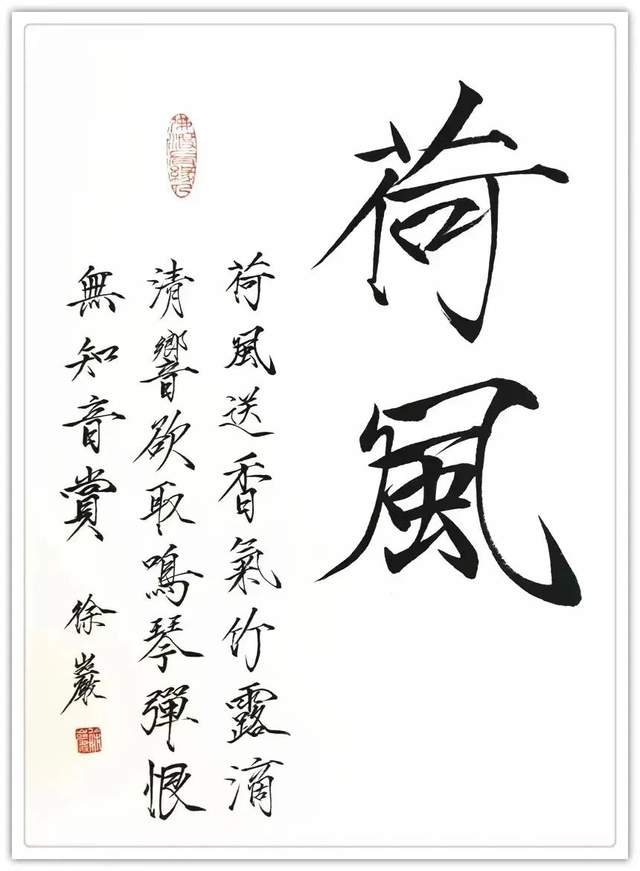 荷風
荷風送香氣竹露滴
清響欲取鳴琴彈恨
無知音賞
徐巖